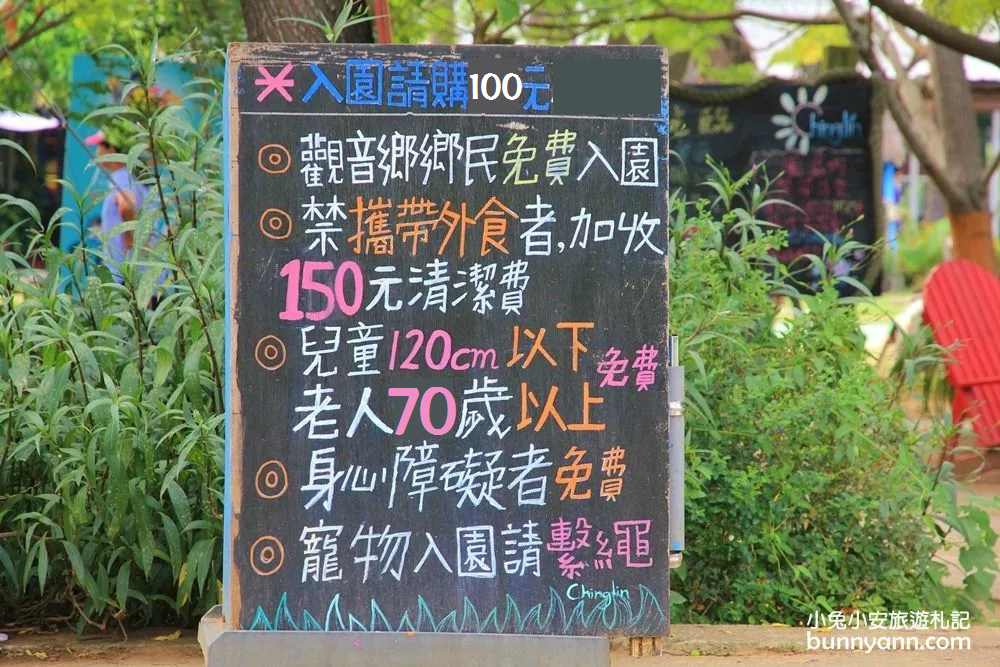 入園請購100元
觀音鄉鄉民免費入園
禁攜帶外食者,加收
150元清潔費
兒童120cm以下
免費
老人70歲以上
身心障礙者免費
寵物入園請繫繩
Chinglin
Chinglin
小兔小安旅遊札記
bunnyann.com